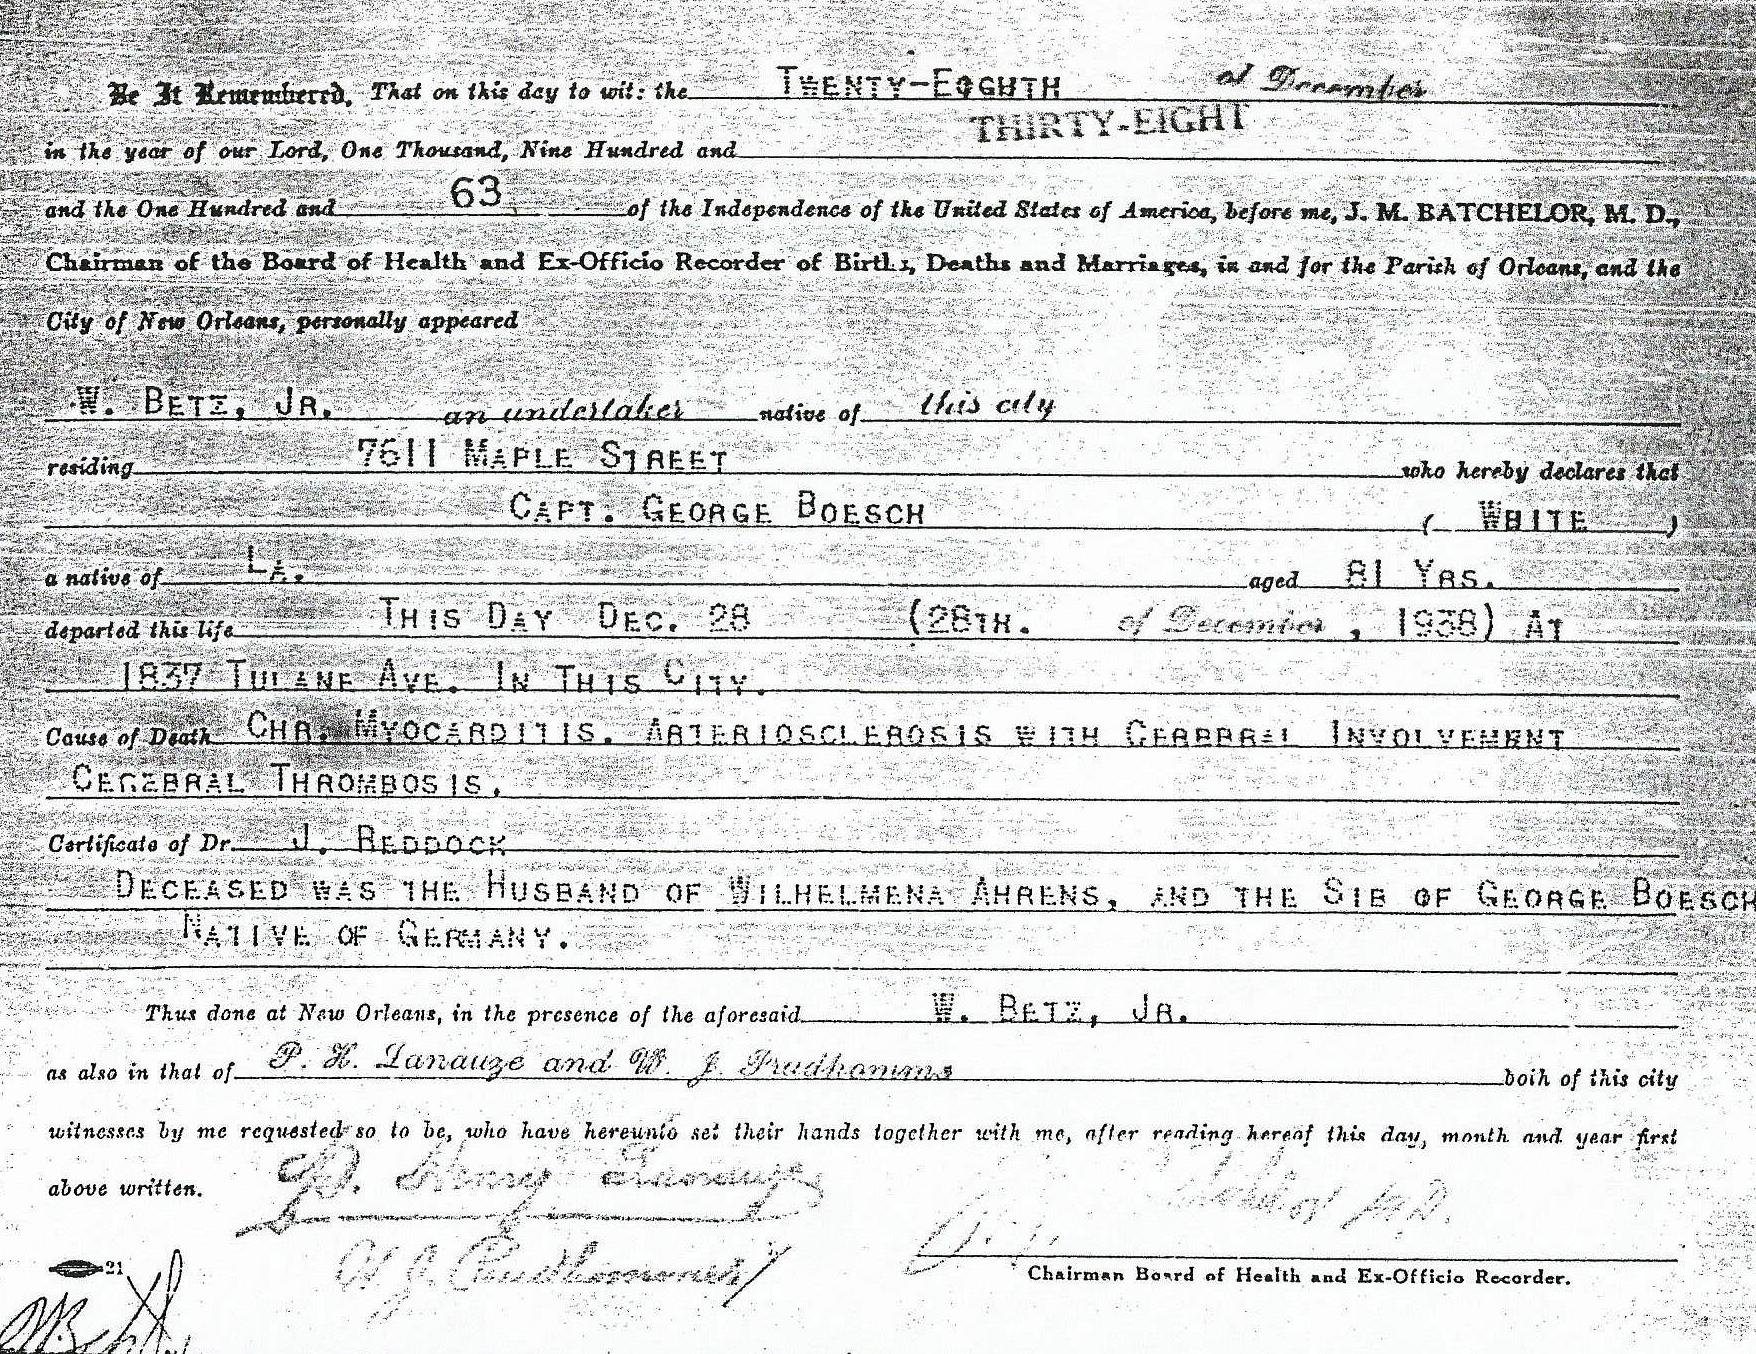 Be It Remembered, That on this day to wit: the TWENTY-EIGHTH of December
THIRTY-EIGHT
in the year of our Lord, One Thousand, Nine Hundred and
and the One Hundred and 63 of the Independence of the United States of America, before me, J. M. BATCHELOR, M. D.,
Chairman of the Board of Health and Ex-Officio Recorder of Births, Deaths and Marriages, in and for the Parish of Orleans, and the
City of New Orleans, personally appeared
W. BETZ, JR. an undertaker native of this city
residing 7611 MAPLE STREET who hereby declares that
CAPT. GEORGE BOESCH ( WHITE )
a native of LA. aged 81 YRS.
departed this life THIS DAY DEC. 28 (28TH. of December, 1938) AT
1837 TULANE AVE. IN THIS CITY.
Cause of Death CHR. MYOCARDITIS. ARTERIOSCLEROSIS WITH CERBRAL INVOLVEMENT
CEREBRAL THROMBOSIS.
Certificate of Dr. J. REDDOCK
DECEASED WAS THE HUSBAND OF WILHELMENA AHRENS, AND THE SIB OF GEORGE BOESCH
NATIVE OF GERMANY.
Thus done at New Orleans, in the presence of the aforesaid W. BETZ, JR.
as also in that of P. H. Lanauze and W. J. Prudhomme both of this city
witnesses by me requested so to be, who have hereunto set their hands together with me, after reading hereof this day, month and year first
above written. P. Henry Lanauze
W. J. Prudhomme
M.D.
21
Chairman Board of Health and Ex-Officio Recorder.